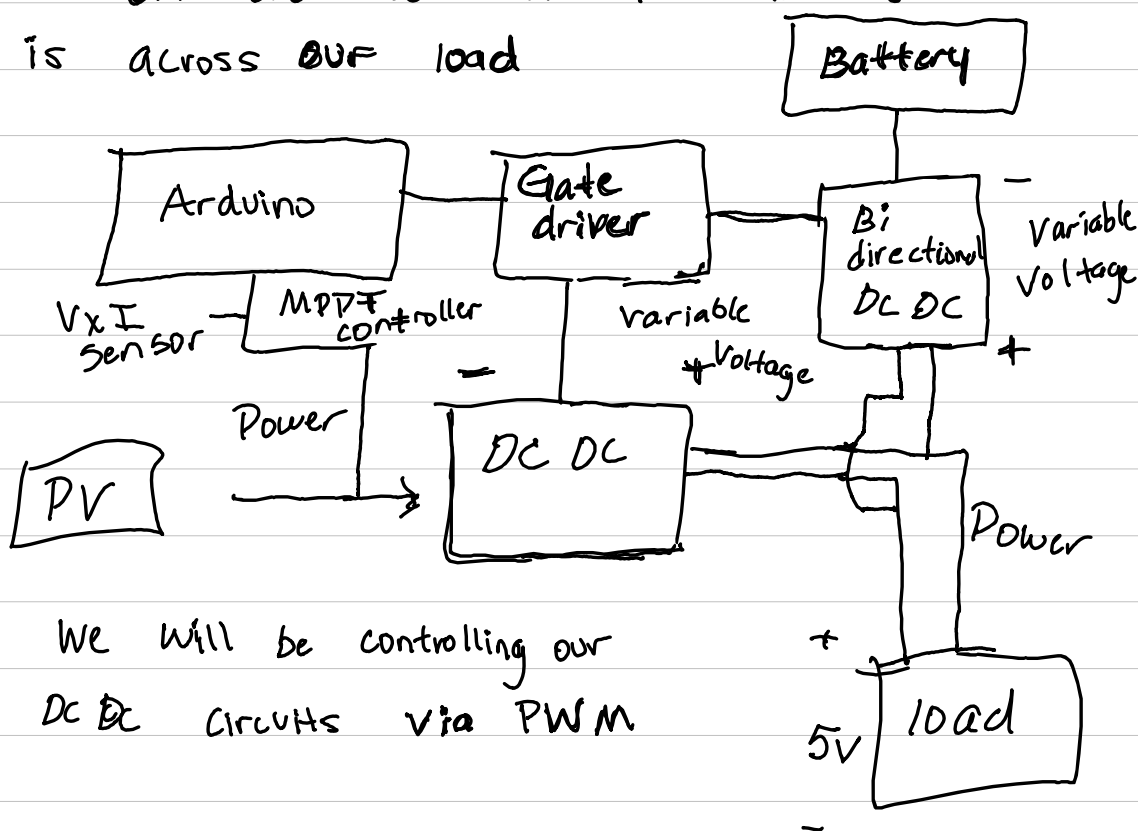 is across our load
Battery
Arduino
Gate
driver
Bi
directional
DC DC
-
Variable
Voltage
+
VxI
sensor
MPPT
controller
variable
+ Voltage
-
Power
DC DC
PV
Power
We will be controlling our
DC DC circuits via PWM
+
5V
-
load